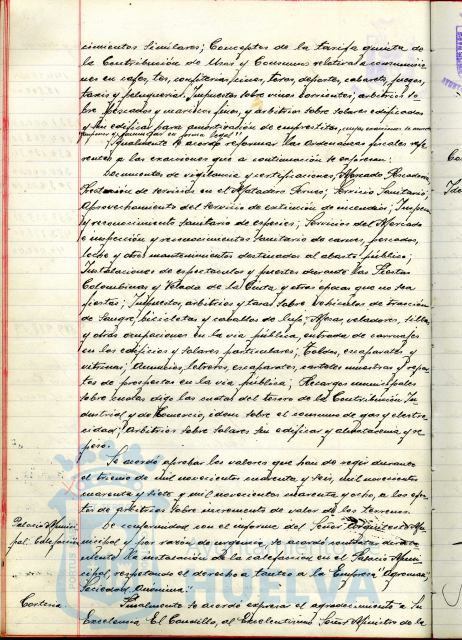 cimientos similares; Conceptos de la tarifa quinta de
la Contribución de Usos y Consumos relativa a consumicio-
nes en cafés, bar, confiterias, cines, toros, deportes, cabarets, juegos,
taxis y peluquerias. Impuestos sobre vinos corrientes; arbitrios so-
bre Pescados y mariscos finos, y arbitrios sobre solares edificados
y sin edificar para amortización de emprestitos,
Igualmente se acordó reformar las ordenanzas fiscales refe-
rentes a las exacciones que a continuación se expresan:
Documentos de vigilancia y certificaciones; Mercado Pescadería;
Prestación de servicios en el Matadero Servicio Sanitario;
Aprovechamiento del Servicio de extinción de incendios; Inspección
y reconocimiento sanitario de especies; Servicios del Mercado
e inspección y reconocimientos sanitario de carnes, pescados,
leche y otros mantenimientos destinados al abasto público;
Instalaciones de espectaculos y puestos durante las Fiestas
Colombinas y Velada de la Cinta, y otras épocas que no sea
fiestas; Impuestos, arbitrios y tasas sobre vehiculos de tracción
de sangre, bicicletas y caballos de lujo; Mesas, veladores, sillas
y otras ocupaciones en la via pública, entrada de carruajes
en los edificios y solares particulares; Toldos, escaparates y
vitrinas; Anuncios, letreros, escaparates, carteles muestras y repar-
to de prospectos en la via pública; Recargos municipales
sobre cuotas digo las cuotas del tesoro de la Contribución In-
dustrial y de Comercio, idem sobre el consumo de gas y electri-
cidad; Arbitrios sobre solares sin edificar y
peso.
Se acordó aprobar los valores que han de regir durante
el trienio de mil novecientos cuarenta y seis, mil novecientos
cuarenta y siete y mil novecientos cuarenta y ocho, a los efec-
tos de arbitrios sobre incremento de valor de los terrenos.
Palacio Munici-
pal. Calefacción
De conformidad con el informe del Señor Arquitecto Mu-
nicipal y por razón de urgencia, se acordó contratar directa-
mente la instalación de la calefacción en el Palacio Muni-
cipal, respetando el derecho a tanteo a la Empresa "Agroman
Sociedad Anonima"
Cortesia.
Finalmente se acordó expresar el agradecimiento a Su
Excelencia El Caudillo, al Excelentisimo Señor Ministro de la
Ayuntamiento
HUELVA